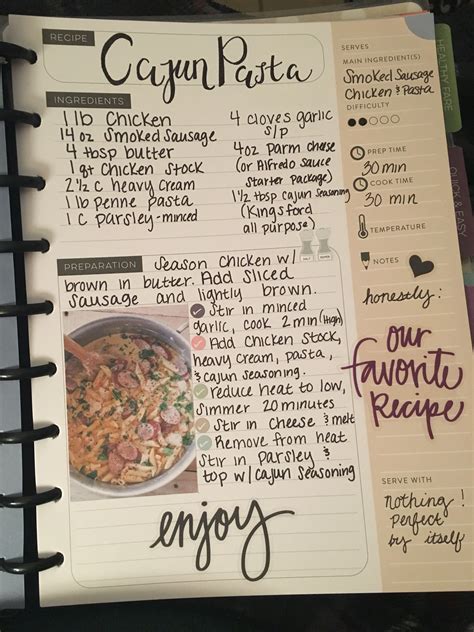 RECIPE
Cajun Pasta
INGREDIENTS
1 lb Chicken
14 oz Smoked Sausage
4 tbsp butter
1 qt Chicken Stock
2 ½ c heavy Cream
1 lb penne pasta
1 c Parsley-minced
4 cloves garlic
S/P
4oz Parm cheese
(or Alfredo Sauce
Starter package)
1 ½ tbsp cajun seasoning
(Kingsford
all purpose)
PREPARATION
Season Chicken w/
brown in butter. Add sliced
sausage and lightly brown.
Stir in minced
garlic, cook 2 min (High)
Add Chicken Stock,
heavy Cream, pasta,
& cajun seasoning.
reduce heat to low,
Simmer 20 minutes
Stir in Cheese & melt
Remove from heat
Stir in Parsley &
top w/Cajun Seasoning
enjoy
SERVES
MAIN INGREDIENT(S)
Smoked Sausage
Chicken & Pasta
DIFFICULTY
PREP TIME
30 min
COOK TIME
30 min
TEMPERATURE
NOTES
honestly:
our
favorite
Recipe
SERVE WITH
nothing!
Perfect
by itself
HEALTHY FARE
QUICK & EASY